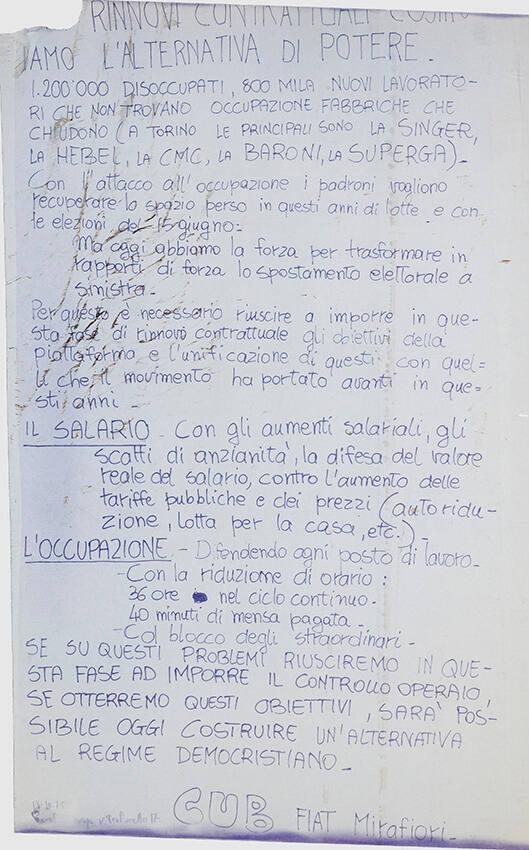 RINNOVI CONTRATTUALI COSTRU
IAMO L'ALTERNATIVA DI POTERE.
1.200'000 DISOCCUPATI, 800 MILA NUOVI LAVORATO-
RI CHE NON TROVANO OCCUPAZIONE FABBRICHE CHE
CHIUDONO (A TORINO LE PRINCIPALI SONO LA SINGER,
LA HEBEL, LA CMC, LA BARONI, LA SUPERGA)-
Con l'attacco all'occupazione i padroni vogliono
recuperare lo spazio perso in questi anni di lotte e con
le elezioni del 15 giugno-
Ma oggi abbiamo la forza per trasformare in
rapporti di forza lo spostamento elettorale a
sinistra-
Per questo è necessario riuscire a imporre in que-
sta fase di rinnovo contrattuale gli obiettivi della
piattaforma e l'unificazione di questi con quel=
li che il movimento ha portato avanti in que=
sti anni -
IL SALARIO - Con gli aumenti salariali, gli
scatti di anzianità, la difesa del valore
reale del salario, contro l'aumento delle
tariffe pubbliche e dei prezzi (autoridu-
zione, lotta per la casa, etc.)-
L'OCCUPAZIONE - Difendendo ogni posto di lavoro-
- Con la riduzione di orario :
36 ore nel ciclo continuo-
40 minuti di mensa pagata-
- Col blocco degli straordinari-
SE SU QUESTI PROBLEMI RIUSCIREMO IN QUE-
STA FASE AD IMPORRE IL CONTROLLO OPERAIO,
SE OTTERREMO QUESTI OBIETTIVI, SARA' POS-
SIBILE OGGI COSTRUIRE UN'ALTERNATIVA
AL REGIME DEMOCRISTIANO-
CUB FIAT Mirafiori-